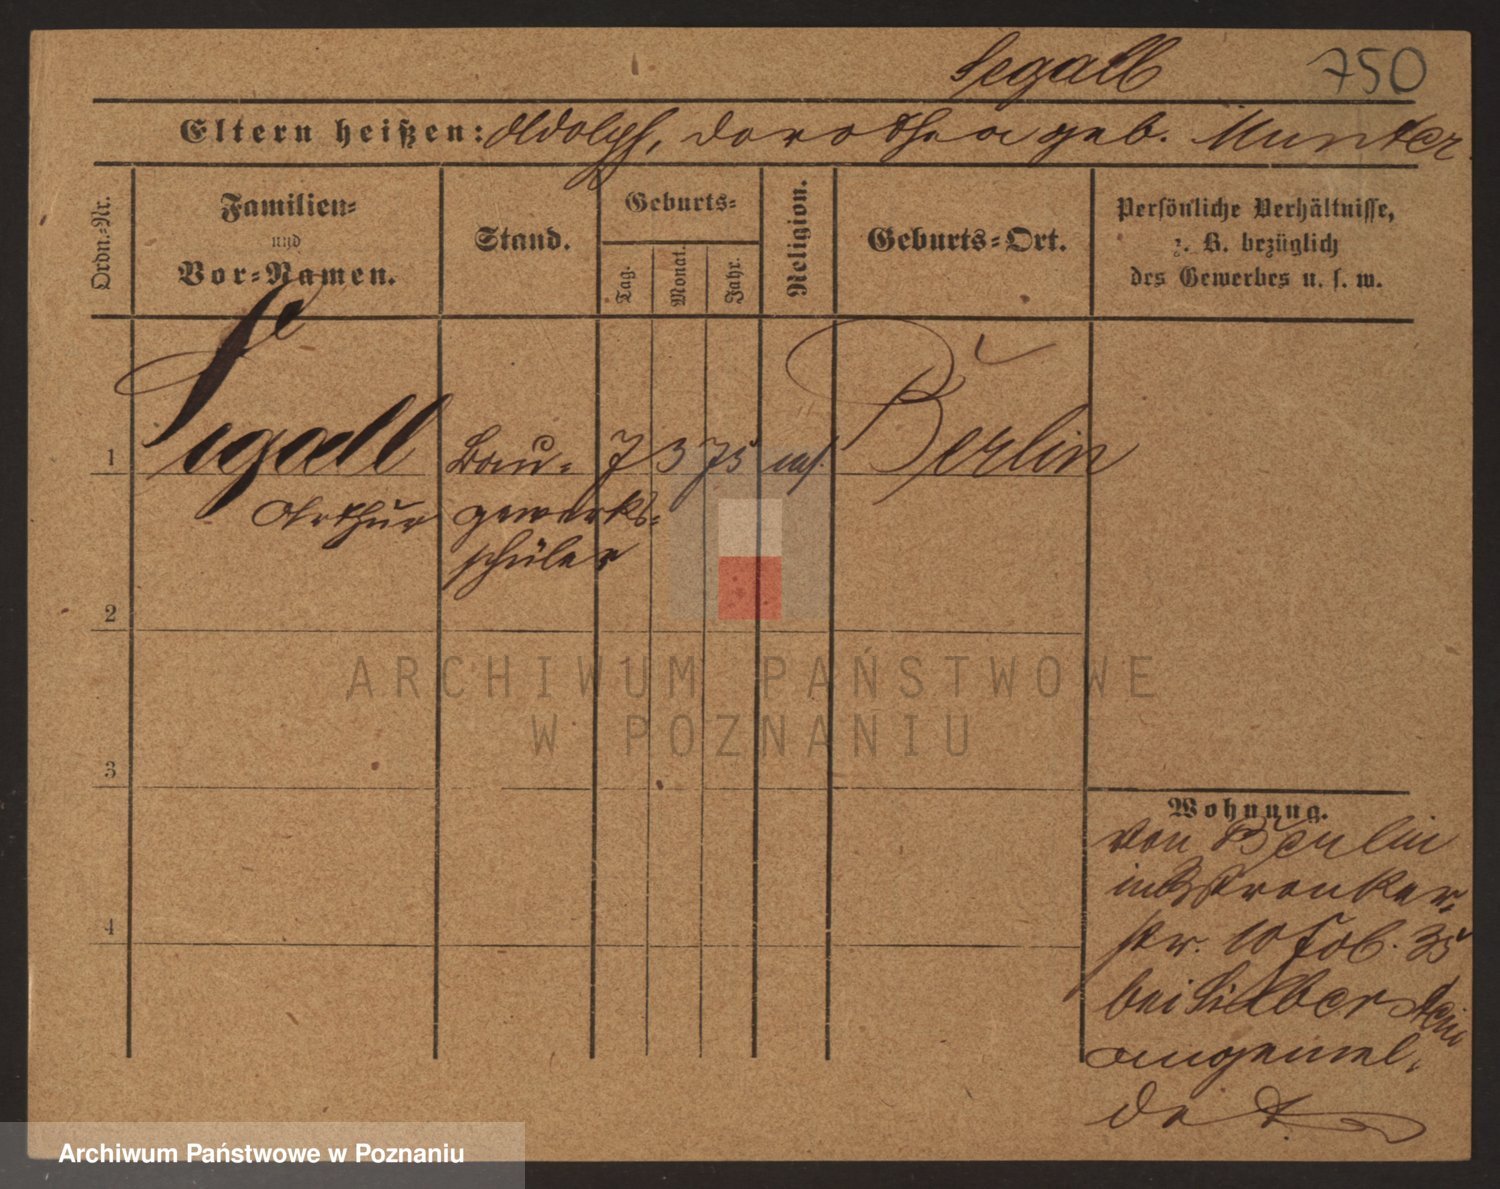 Segall 750
Eltern heißen: Adolph, Dorothea geb. Munter
Ordn.-Nr.
Familien-
und
Vor-Namen.
Stand.
Geburts-
Tag.
Monat.
Jahr.
Religion.
Geburts-Ort.
Persönliche Verhältnisse,
z. B. bezüglich
des Gewerbes u. s. w.
1 Segall Bau- 7 3 75 mos. Berlin
Arthur gewerks-
schüler
2
3
4
Wohnung.
von Berlin
str. 10 Feb. 35
bei Silberstein
angemel-
det
ARCHIWUM PAŃSTWOWE
W POZNANIU
Archiwum Państwowe w Poznaniu